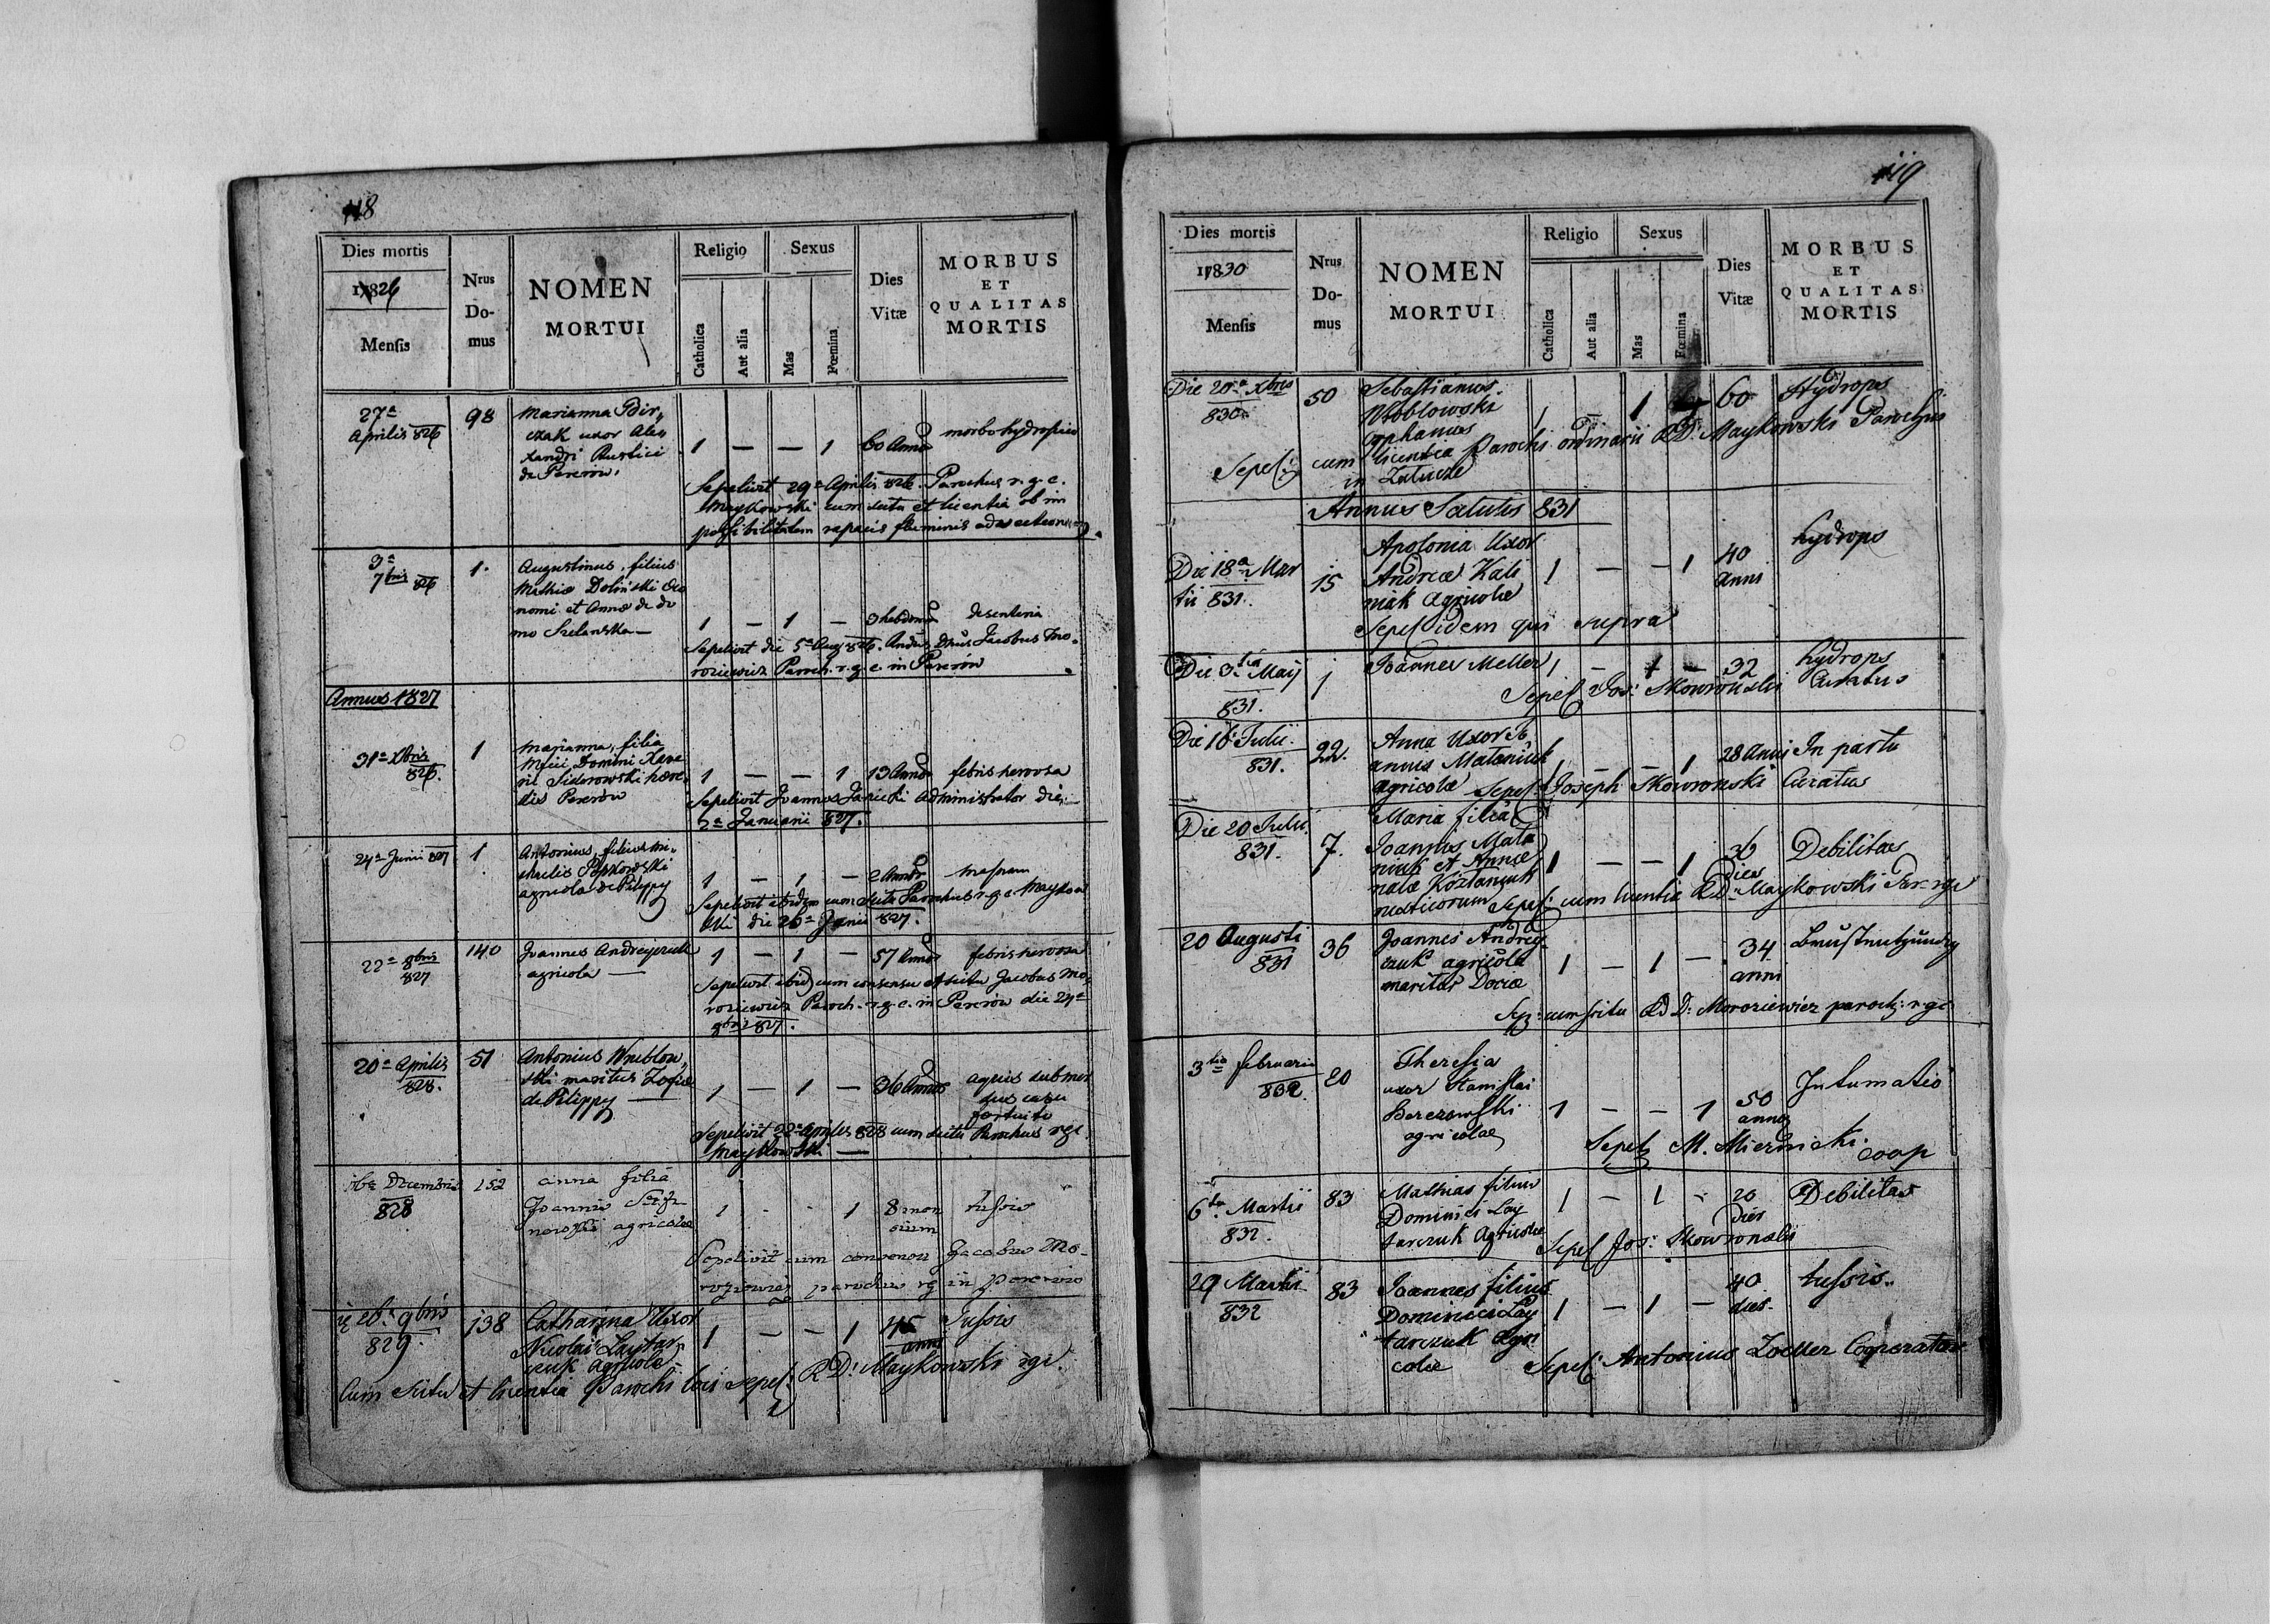 118
Dies mortis
1826
Mensis
Nrus
Do-
mus
NOMEN
MORTUI
Religio
Catholica
Aut alia
Sexus
Mas
Fœmina
Dies
Vitæ
MORBUS
ET
QUALITAS
MORTIS
27a
Aprilis 826
98
Marianna
uxor Ale
xandri Rustici
de Pererow
1 — — 1
60 Anno
morbo hydropico
Sepelivit 29a Aprilis 826 Parochus r. g. c.
Maykowski cum scitu et licentia ob im
possibilitatem rapacis fluminis
3a
7bris 826
1.
Augustinus, filius
Mathiæ Doliński Oeco
nomi et Annæ de do
mo Szelanska —
1 — 1 —
3 hebdom
desenteria
Sepelivit die 5a 826. Jacobus Mo-
roziewicz Paroch. r. g. c. in Pererów
Annus 1827
31a Xbris
826.
1
Marianna, filia
Mfici Domini Xave
rii Siderowski hære
dis Pererów
1 — — 1
13 Anno
febris nervosa
Sepelivit Joannes Janicki Administrator die
2a Januarii 827.
24a Junii 827
1
Antonius, filius Mi-
chaelis
agricola de Pilippy
1 — 1 —
2 Anno
Sepelivit ibidem cum scitu Parochus r. g. c. Maykow
ski die 26a Junii 827.
22a 8bris
827
140
Joannes Andreyczuk
agricola —
1 — 1 —
57 Anno
febris nervosa
Sepelivit ibid cum consensu et scitu Jacobus Mo-
roziewicz Paroch. r. g. c. in Pererów die 24a
8bris 827.
20a Aprilis
828.
51
Antonius Wrublow-
ski maritus Zofiæ
de Pilippy —
1 — 1 —
36 Annos
aquis submer
sus casu
fortuito
Sepelivit 22a Aprilis 828 cum scitu Parochus rgc.
Maykowski —
16a Decembris
828
152
anna filia
Joannis
agricolæ
1 - - 1
8 men
sium
tussis
Sepelivit cum consensu Jacobus Mo-
roziewicz parochus rg in Pererow
829.
138
Catharina Uxor
Nicolai Laytar-
czuk Agricolæ
1 — — 1
45
anni
Tussis
Cum scitu et licentia Parochi loci sepel: R D: Maykowski rgc.
119
Dies mortis
1830
Mensis
Nrus
Do-
mus
NOMEN
MORTUI
Religio
Catholica
Aut alia
Sexus
Mas
Fœmina
Dies
Vitæ
MORBUS
ET
QUALITAS
MORTIS
Die 20a Xbris
830
50
Sebastianus
Wroblowski
orphanus
1 1
60
Hydrops
Sepel: cum licentia Parochi ordinarii R D: Maykowski Parochus
in Zalucze
Annus Salutis 831
Die 18a Mar
tii 831.
15
Apolonia Uxor
Andreæ Kali
niak Agricolæ
1 — — 1
40
anni
hydrops
Sepel idem qui supra
Die 3tia Maij
831.
1
Joannes Meller
1 — 1 —
32
hydrops
Sepel Jos: Skowronski Curatus
Die 18 Julii
831.
22.
Anna Uxor Jo
annis Mataniuk
agricolæ
1 — — 1
28 anni
In partu
Sepel: Joseph Skowronski Curatus
Die 20 Julii
831.
7.
Maria filia
Joannis Mata
niuk et Annæ
natæ Kozlaniuk
rusticorum
1 — — 1
36
dies
Debilitas
Sepel: cum licentia R D: Maykowski Par- rgc
20 Augusti
831
36
Joannes Andrey-
czuk agricola
maritus Dociæ
1 — 1 —
34
anni
Sep: cum scitu R D D: Moroziewicz paroch: rgc
3tia februarii
832.
20
Theresia
uxor Stanislai
Berezowski
agricolæ
1 — — 1
50
annos
Intumatio
Sepel M. Miernicki
coop
6ta Martii
832.
83
Mathias filius
Dominici Lay
tarczuk Agricolæ
1 — 1 -
20
dies
Debilitas
Sepel Jos: Skowronski
29 Martii
832
83
Joannes filius
Dominici Lay
tarczuk Agri
colæ
1 — 1 —
40
dies
tussis..
Sepel: Antonius Zoeller Cooperator